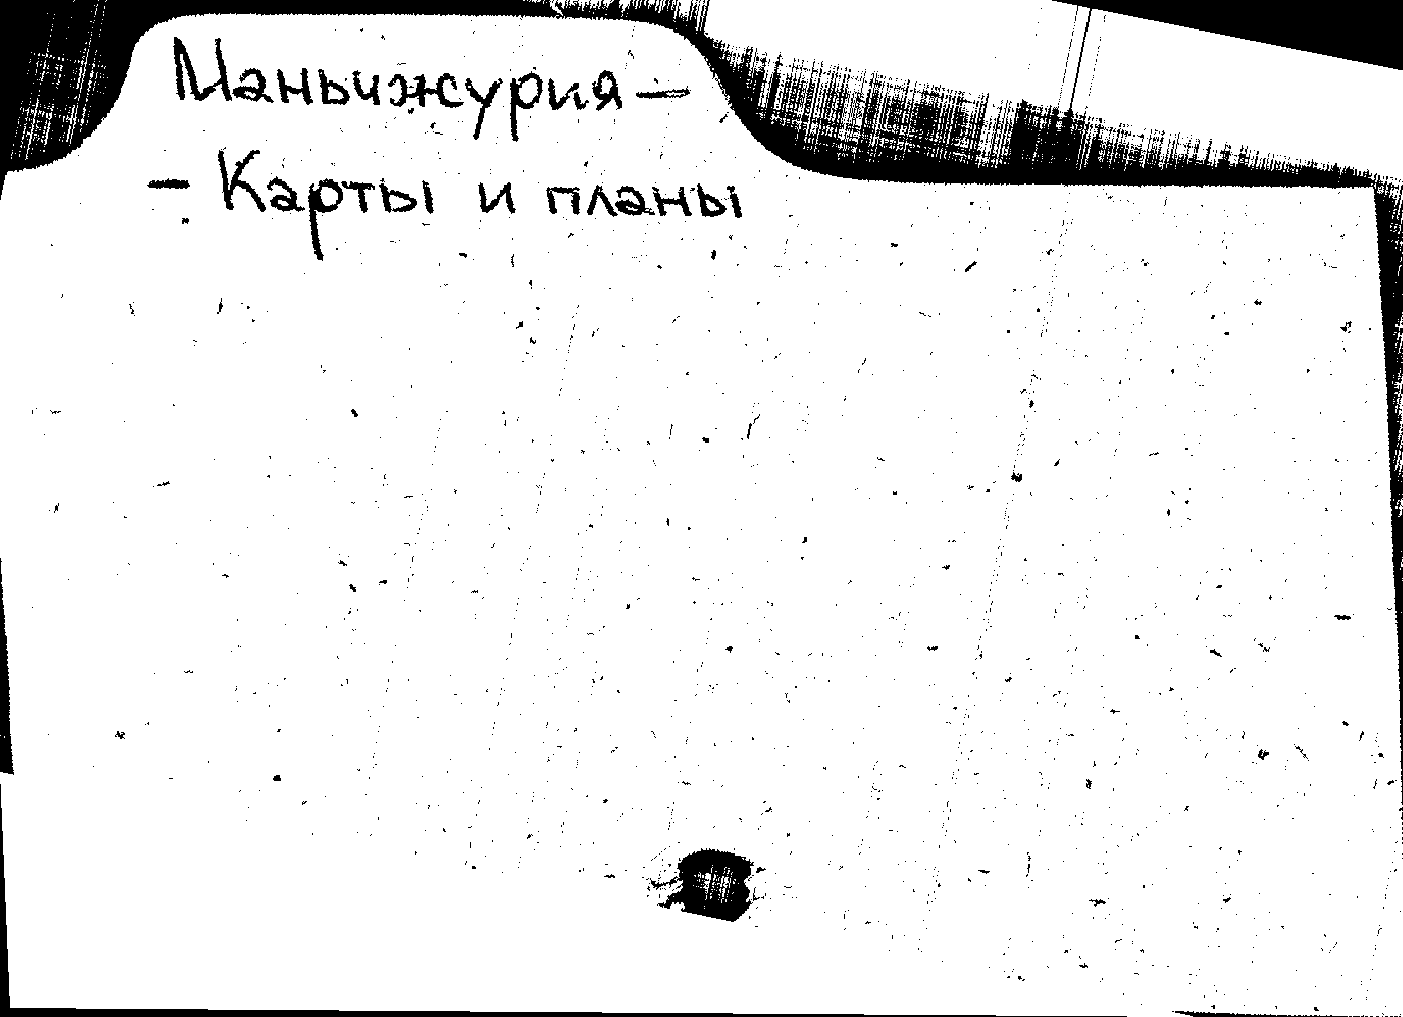 Маньчжурия —
— Карты и планы